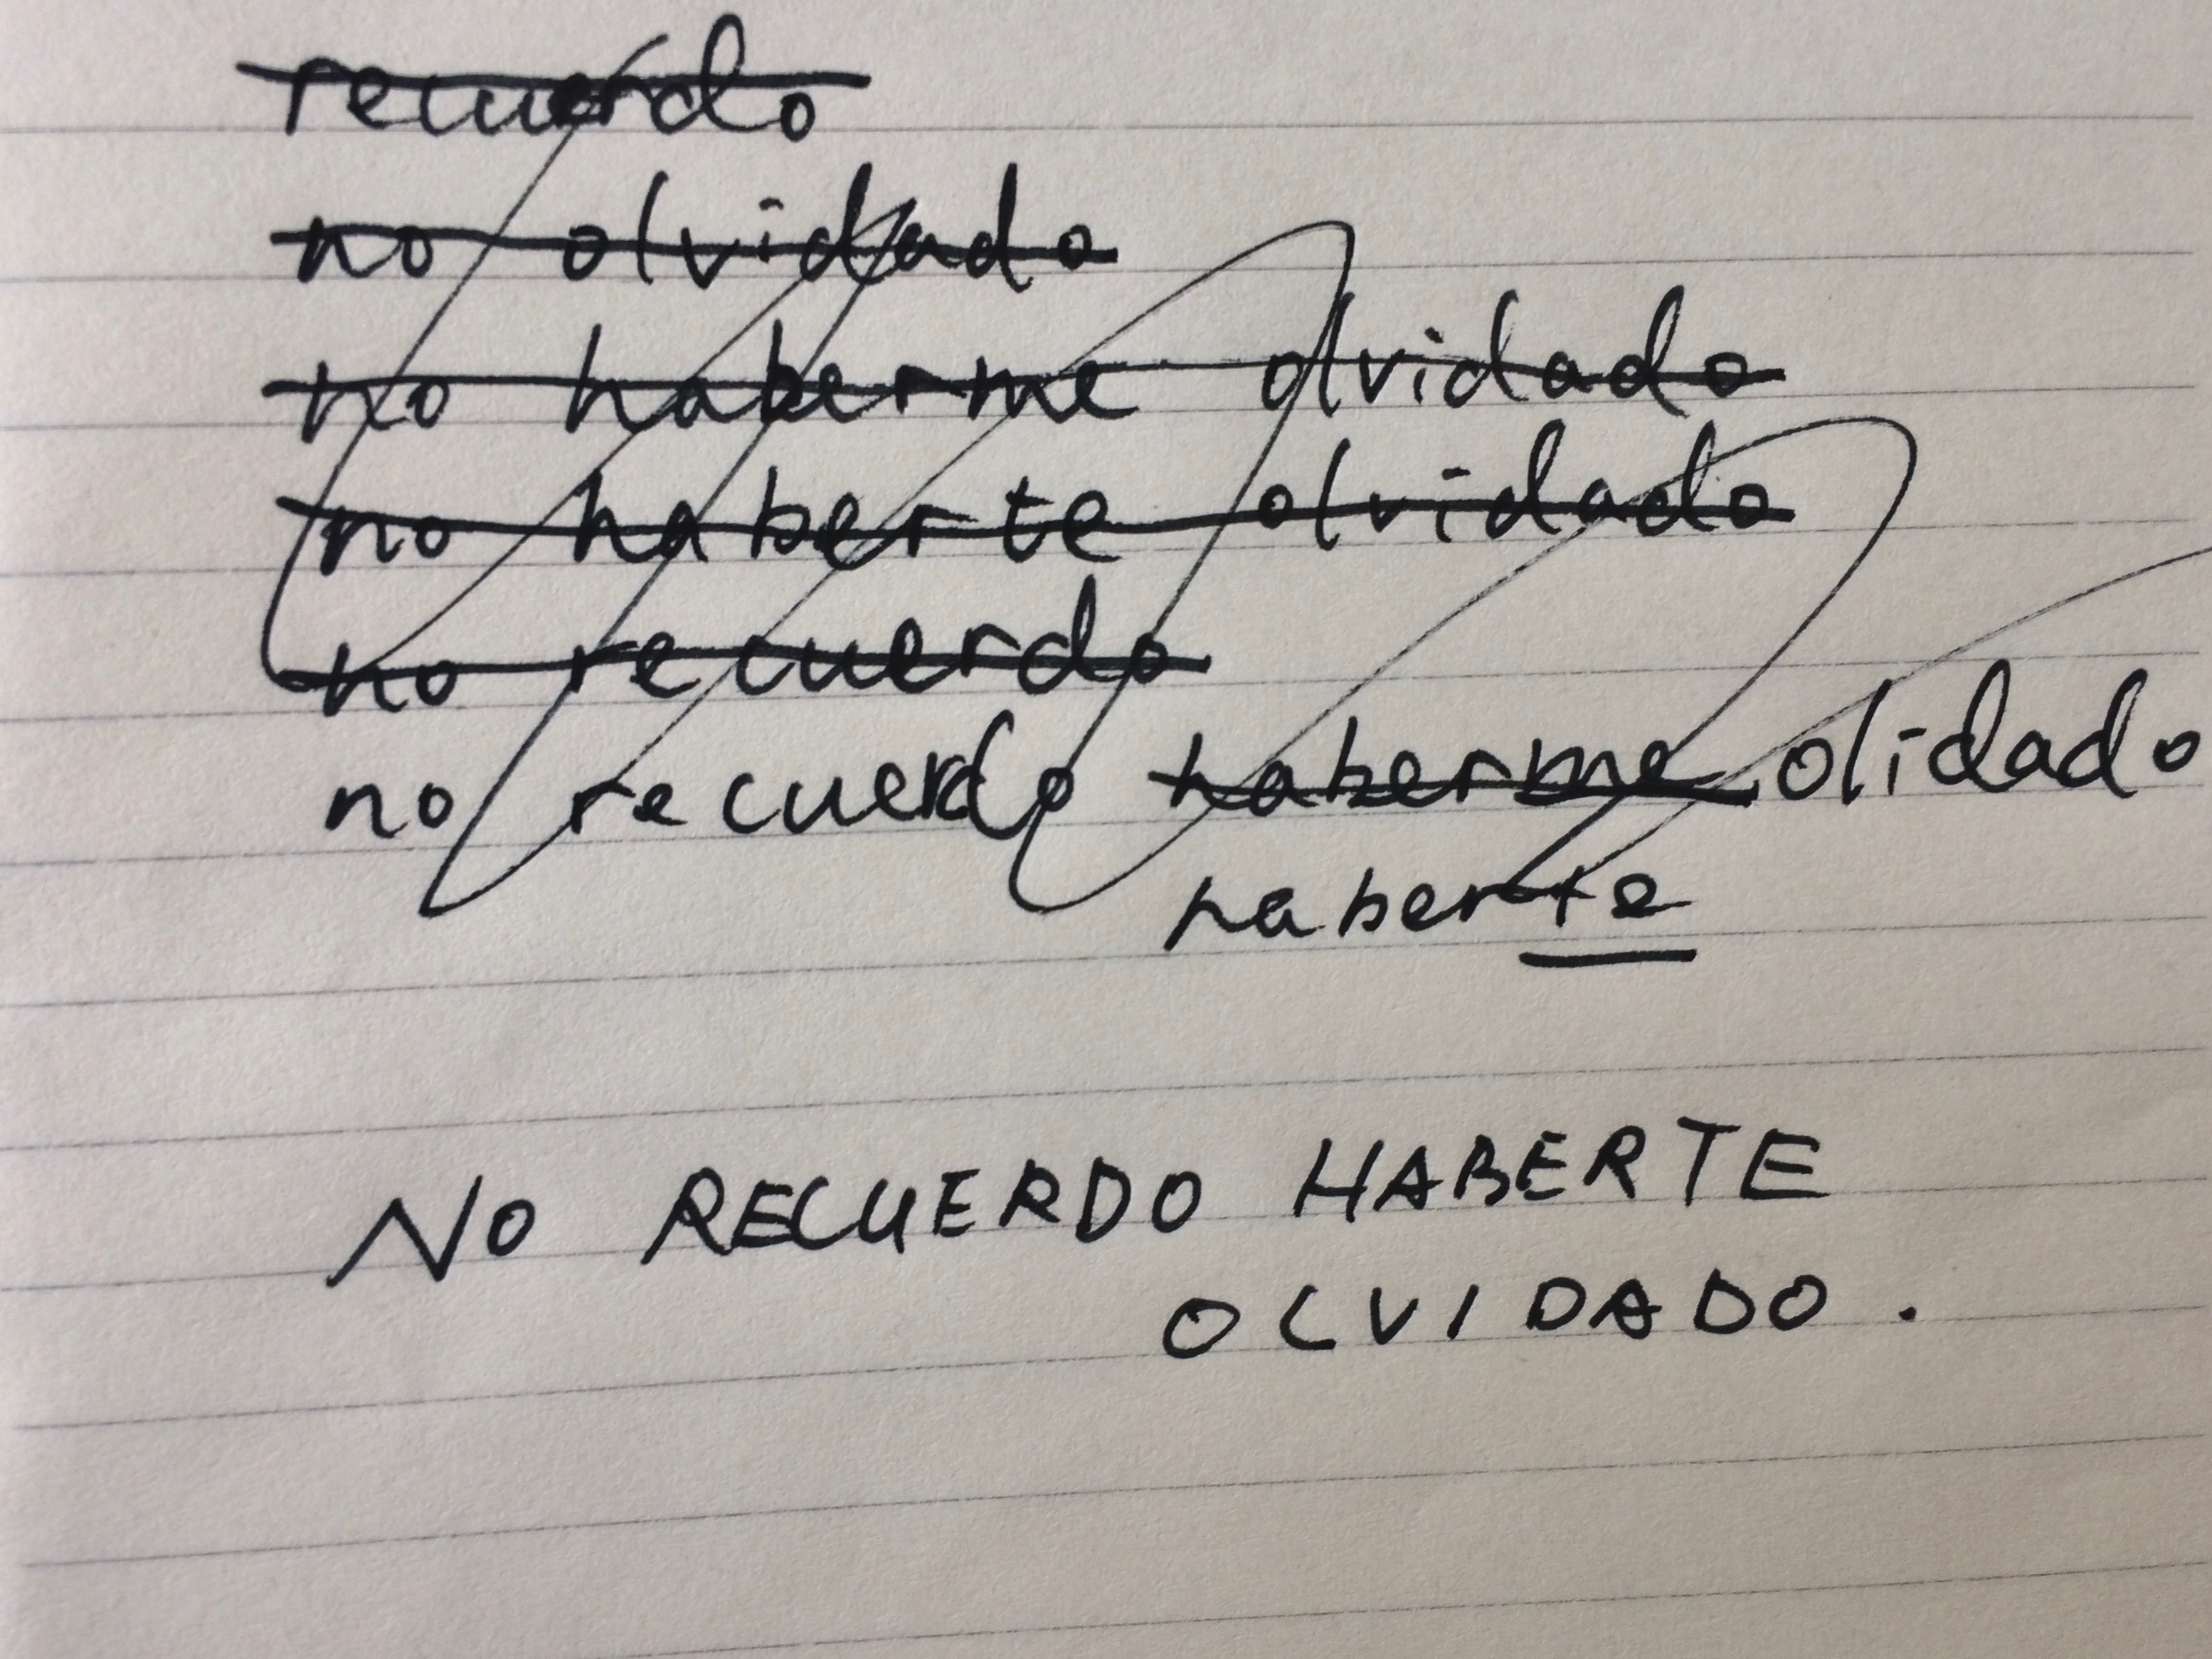 recuerdo
no olvidado
no haberme olvidado
no haberte olvidado
no recuerdo
no recuerdo haberme olidado
haberte
NO RECUERDO HABERTE
OLVIDADO.